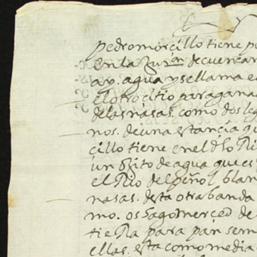 pedro morcillo tiene p
en la Juron de cuernav
a yo. agua y se llama e
el otro citio para gana
de las nasas. como dos leg
nos. de una estancia qu
cillo tiene en el dho Ri
un ojito de agua que es
el Rio del peñol blan
nasas. desta otra banda
mo. os hago merced de
tieRa para pan sem
ellas. esta como media